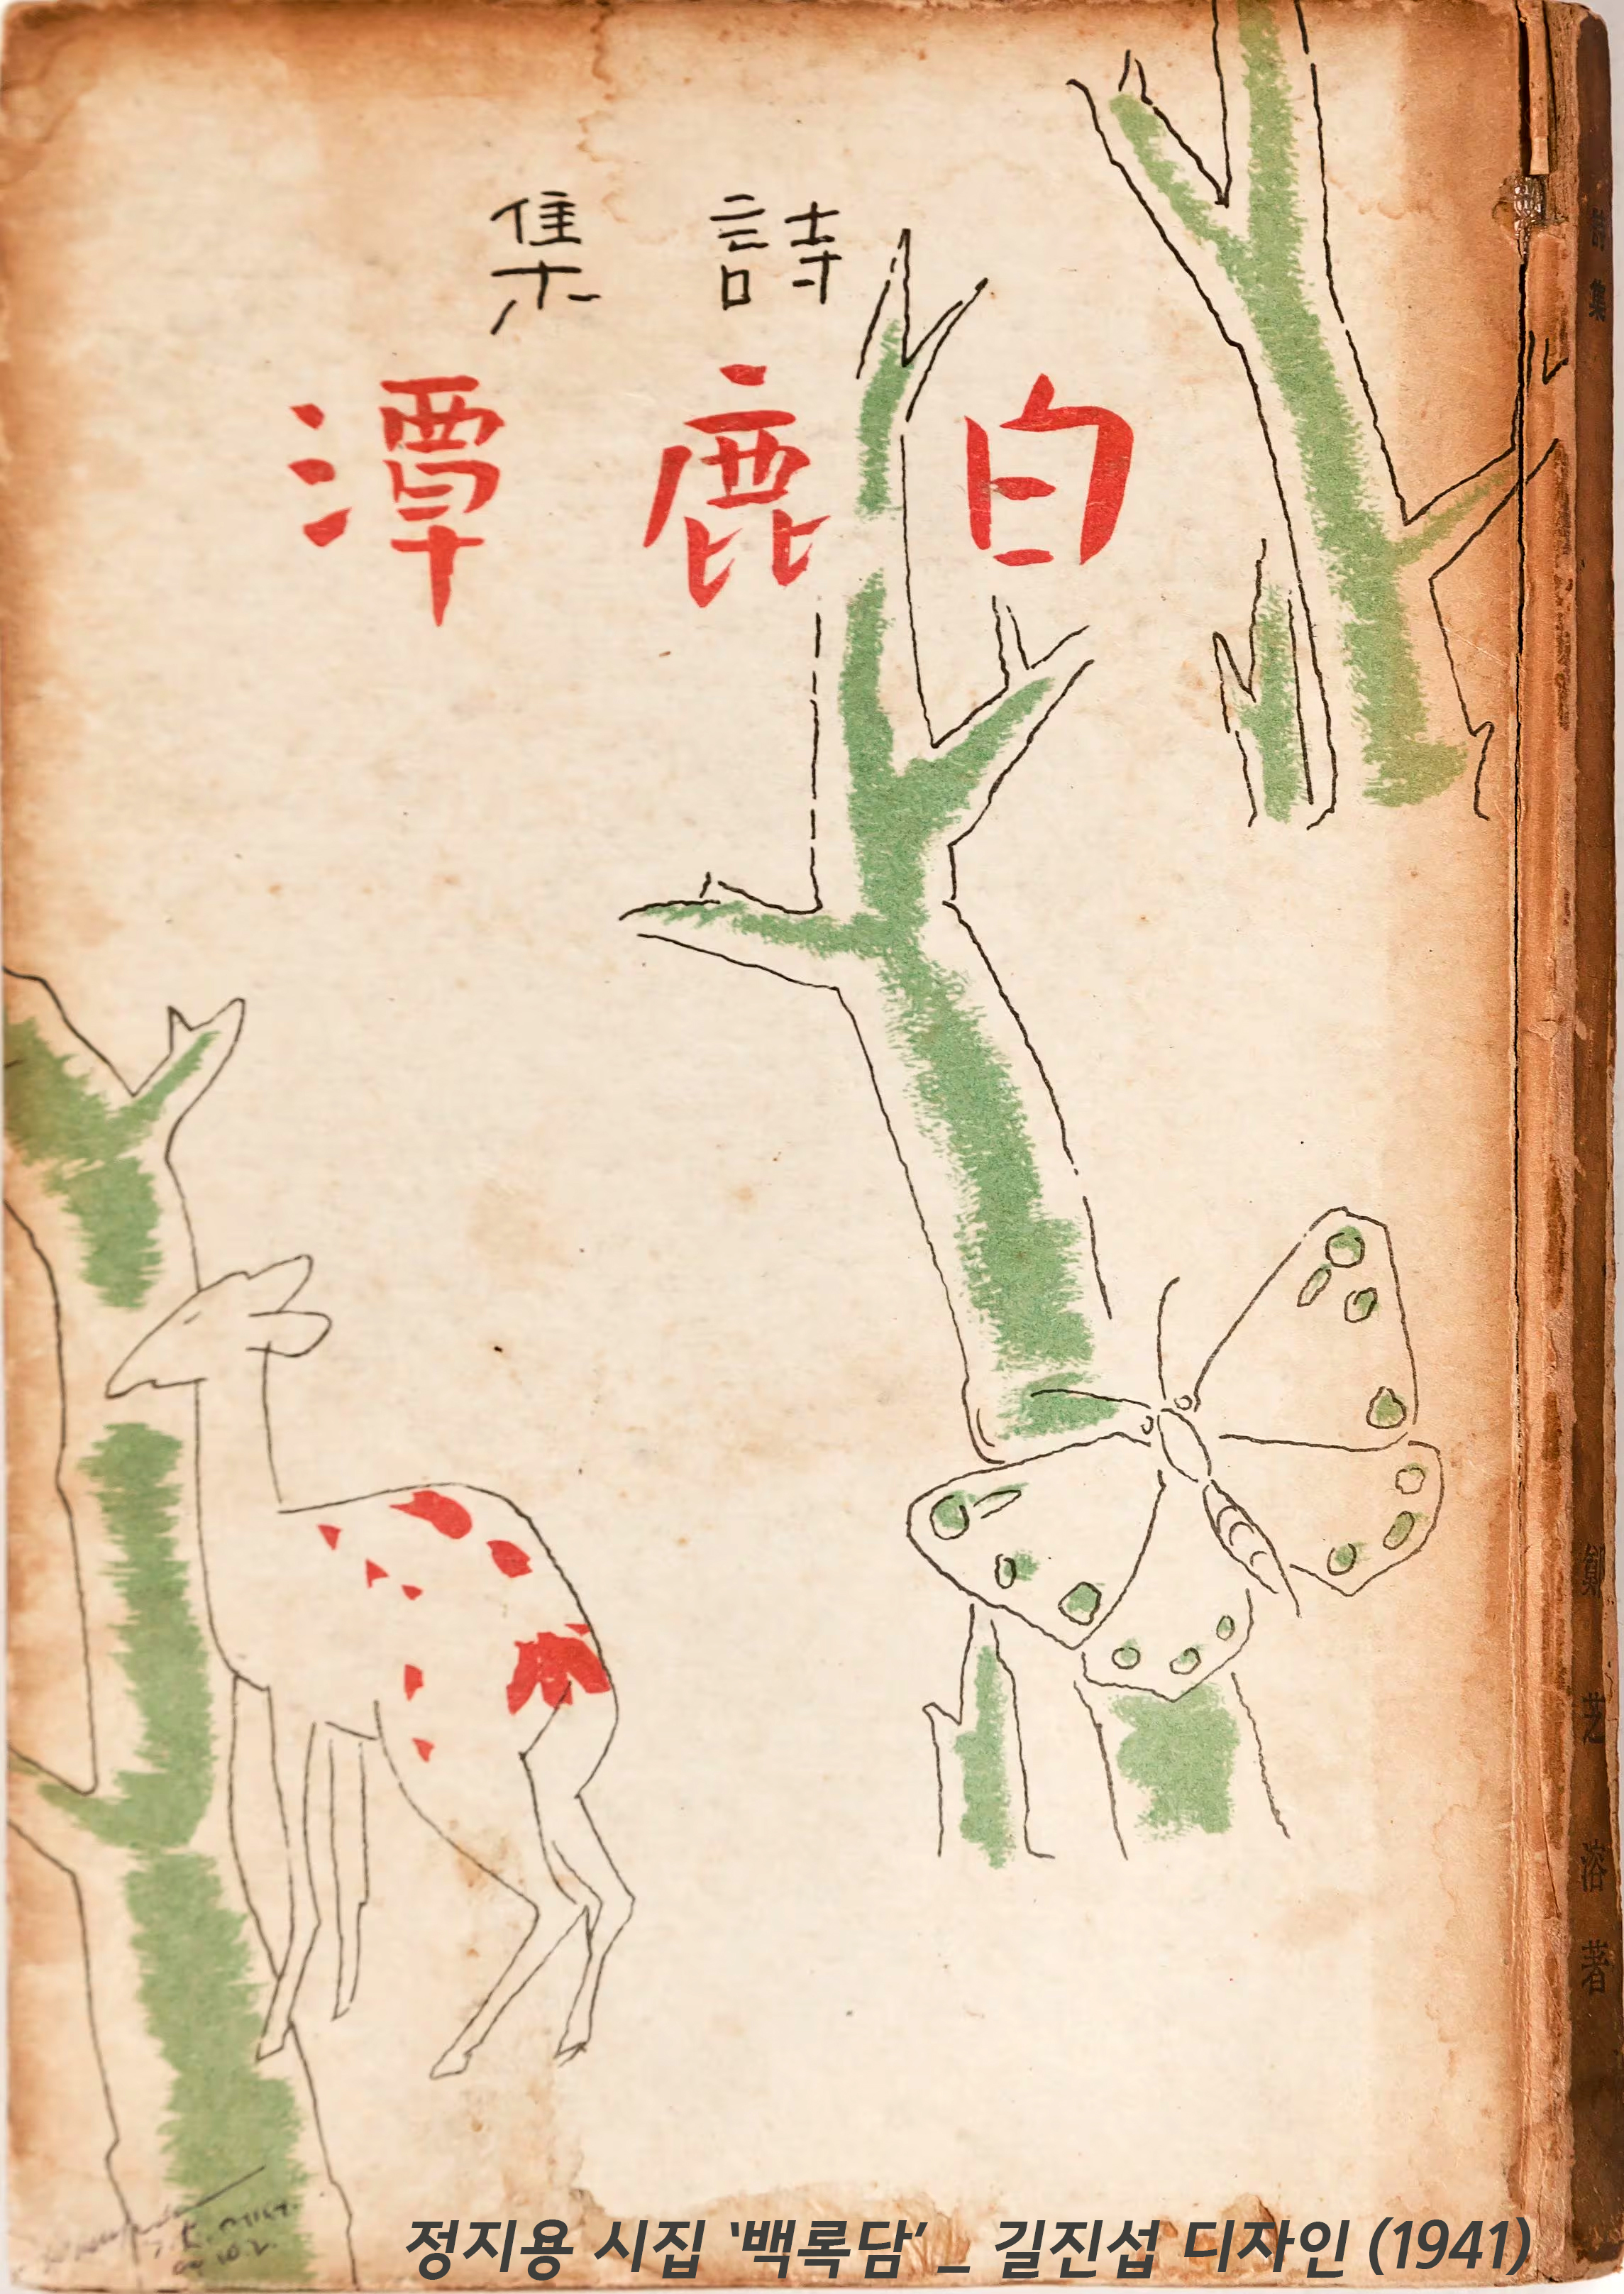 詩集
白鹿潭
詩集 鄭芝溶著
정지용 시집 '백록담' _ 길진섭 디자인 (1941)